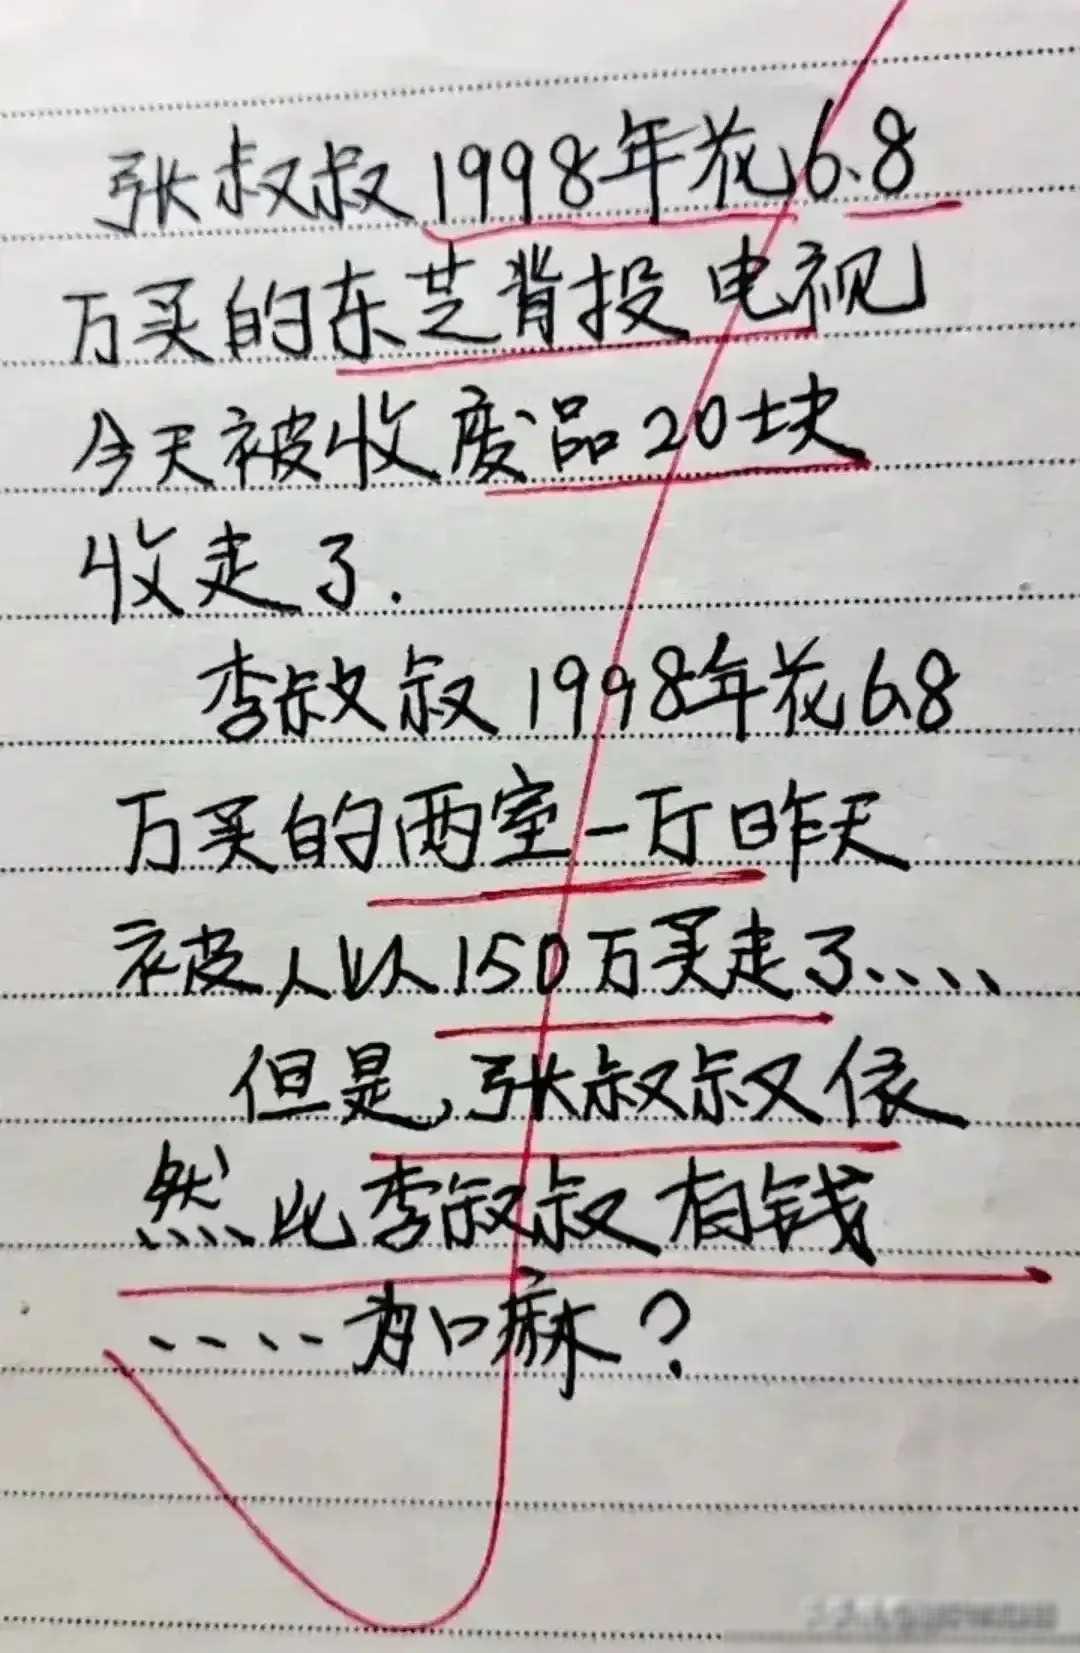 张叔叔1998年花6.8
万买的东芝背投电视
今天被收废品20块
收走了.
李叔叔1998年花6.8
万买的两室一厅昨天
被人以150万买走了、、、、
但是,张叔叔依
然比李叔叔有钱
、、、、为口麻?